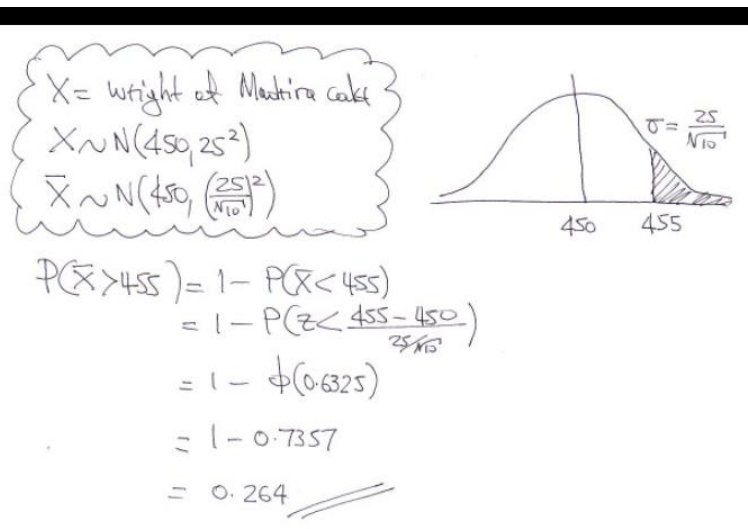 X = weight of Madeira cake
X ~ N(450, 25²)
X̄ ~ N(450, (25/√10)²)
σ = 25/√10
450 455
P(X̄ > 455) = 1 - P(X̄ < 455)
= 1 - P(Z < (455 - 450)/(25/√10))
= 1 - ϕ(0.6325)
= 1 - 0.7357
= 0.264